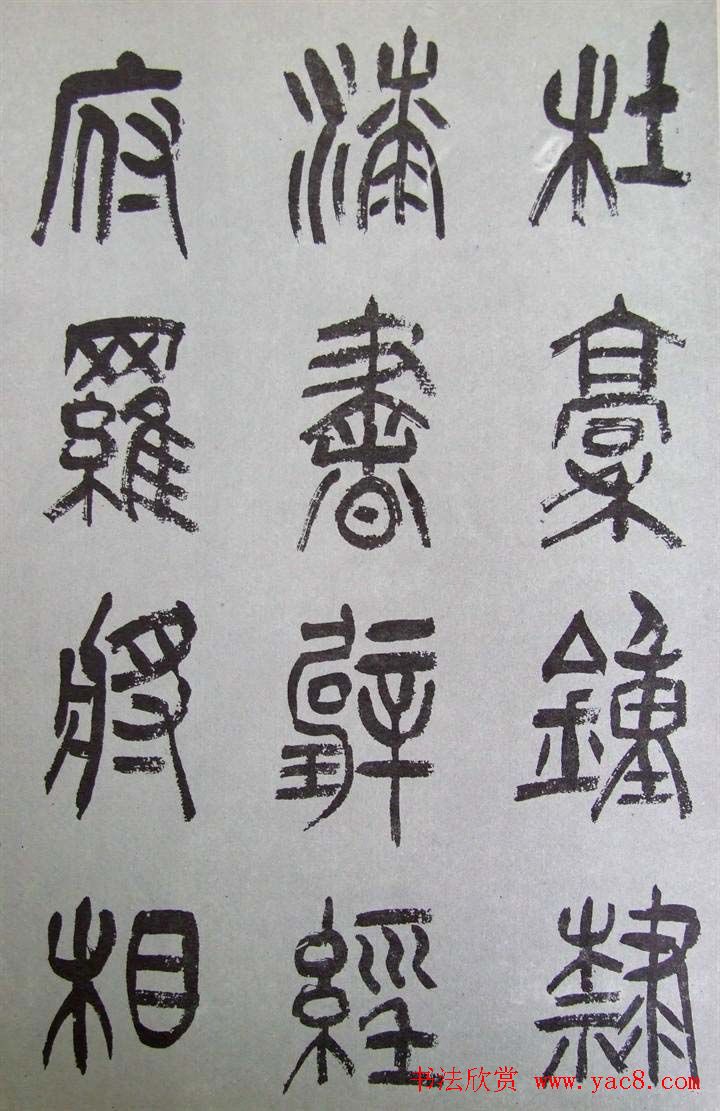 杜稾鍾隸
漆書壁經
府羅將相
书法欣赏 www.yac8.com